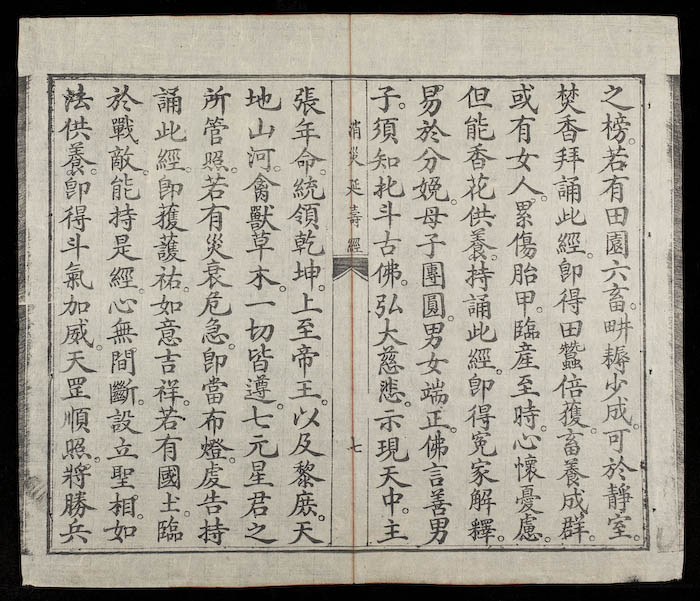 之榜。若有田園六畜。畊耨少成。可於靜室。
焚香拜誦此經。卽得田蠶倍獲。畜養成群。
或有女人。累傷胎甲。臨産至時。心懷憂慮。
但能香花供養。持誦此經。卽得冤家解釋。
易於分娩。母子團圓。男女端正。佛言善男
子。須知北斗古佛。弘大慈悲。示現天中。主
消災延壽經
七
張年命。統領乾坤。上至帝王。以及黎庶。天
地山河。禽獸草木。一切皆遵七元星君之
所管照。若有災衰危急。卽當布燈虔告。持
誦此經。卽獲護祐。如意吉祥。若有國土。臨
於戰敵。能持是經。心無間斷。設立聖相。如
法供養。卽得斗氣加威。天罡順照。將勝兵